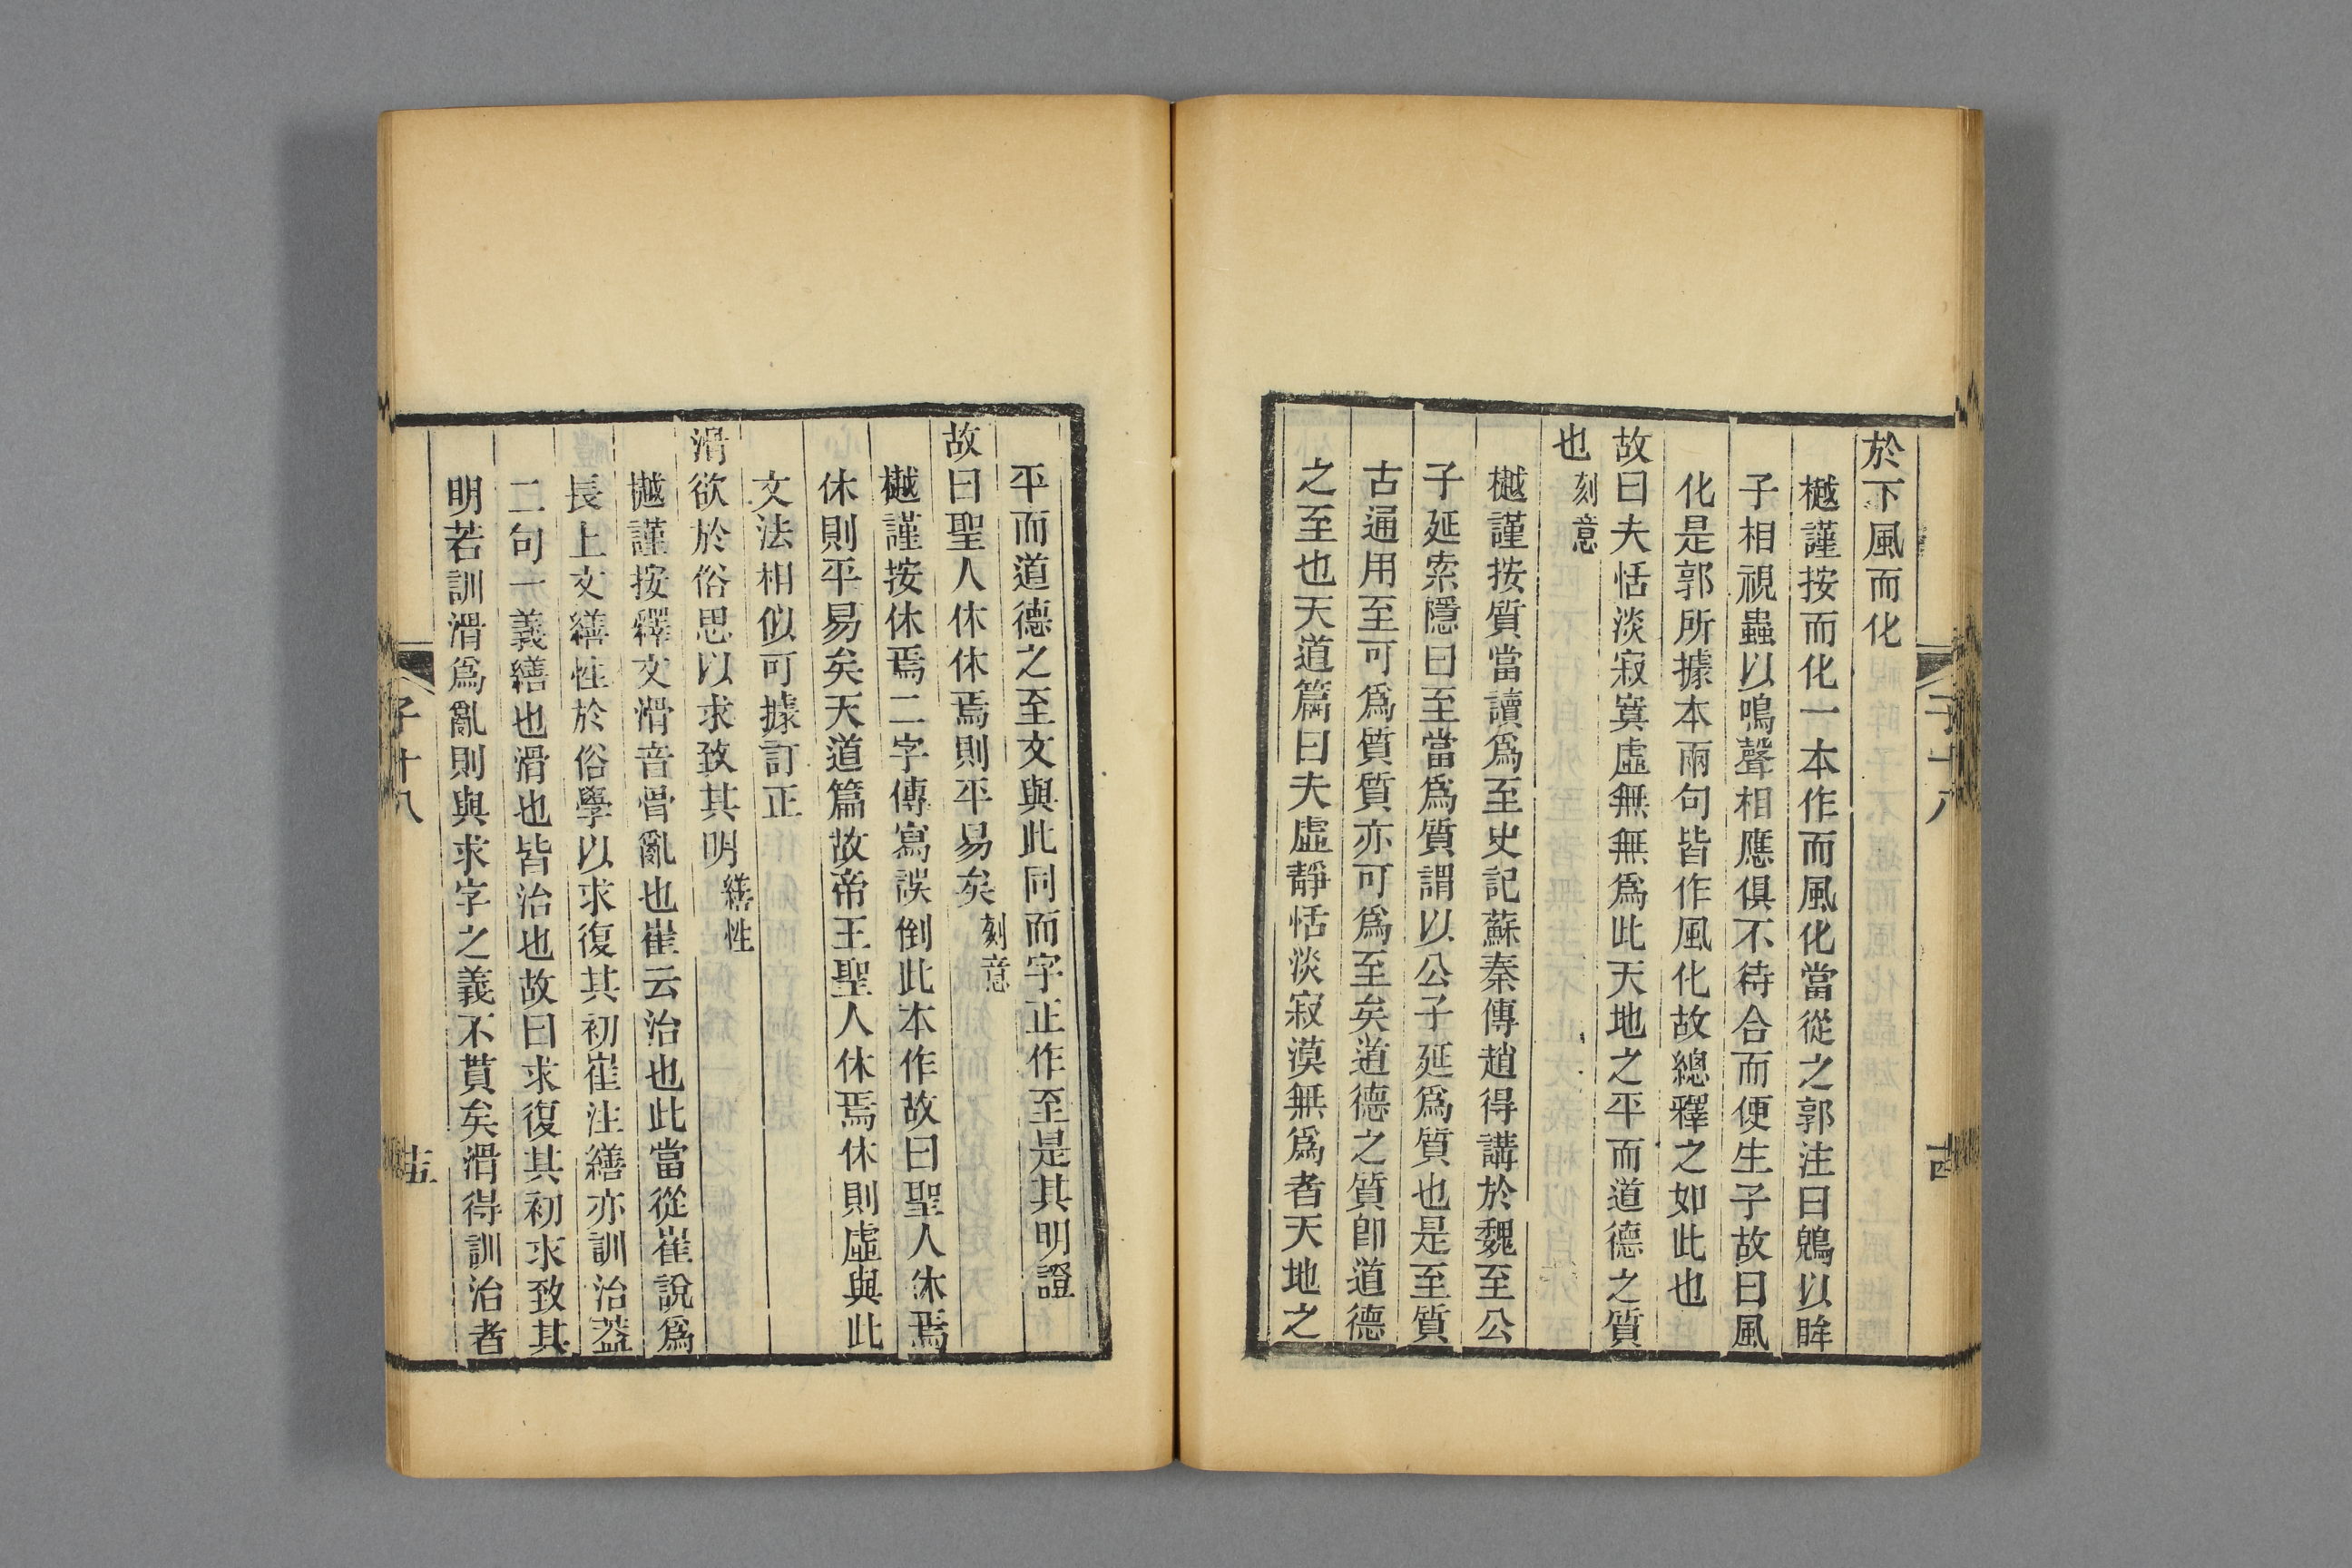 於下風而化
樾謹按而化一本作而風化當從之郭注曰鶂以眸
子相視蟲以鳴聲相應俱不待合而便生子故曰風
化是郭所據本兩句皆作風化故總釋之如此也
故曰夫恬淡寂寞虛無無爲此天地之平而道德之質
也刻意
樾謹按質當讀爲至史記蘇秦傳趙得講於魏至公
子延索隱曰至當爲質謂以公子延爲質也是至質
古通用至可爲質質亦可爲至矣道德之質卽道德
之至也天道篇曰夫虛靜恬淡寂漠無爲者天地之
平而道德之至文與此同而字正作至是其明證
故曰聖人休休焉則平易矣刻意
樾謹按休焉二字傳寫誤倒此本作故曰聖人休焉
休則平易矣天道篇故帝王聖人休焉休則虛與此
文法相似可據訂正
滑欲於俗思以求致其明繕性
樾謹按釋文滑音骨亂也崔云治也此當從崔說爲
長上文繕性於俗學以求復其初崔注繕亦訓治蓋
二句一義繕也滑也皆治也故曰求復其初求致其
明若訓滑爲亂則與求字之義不貫矣滑得訓治者
子十八